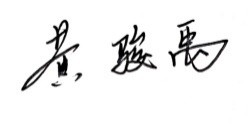 黄骏禹